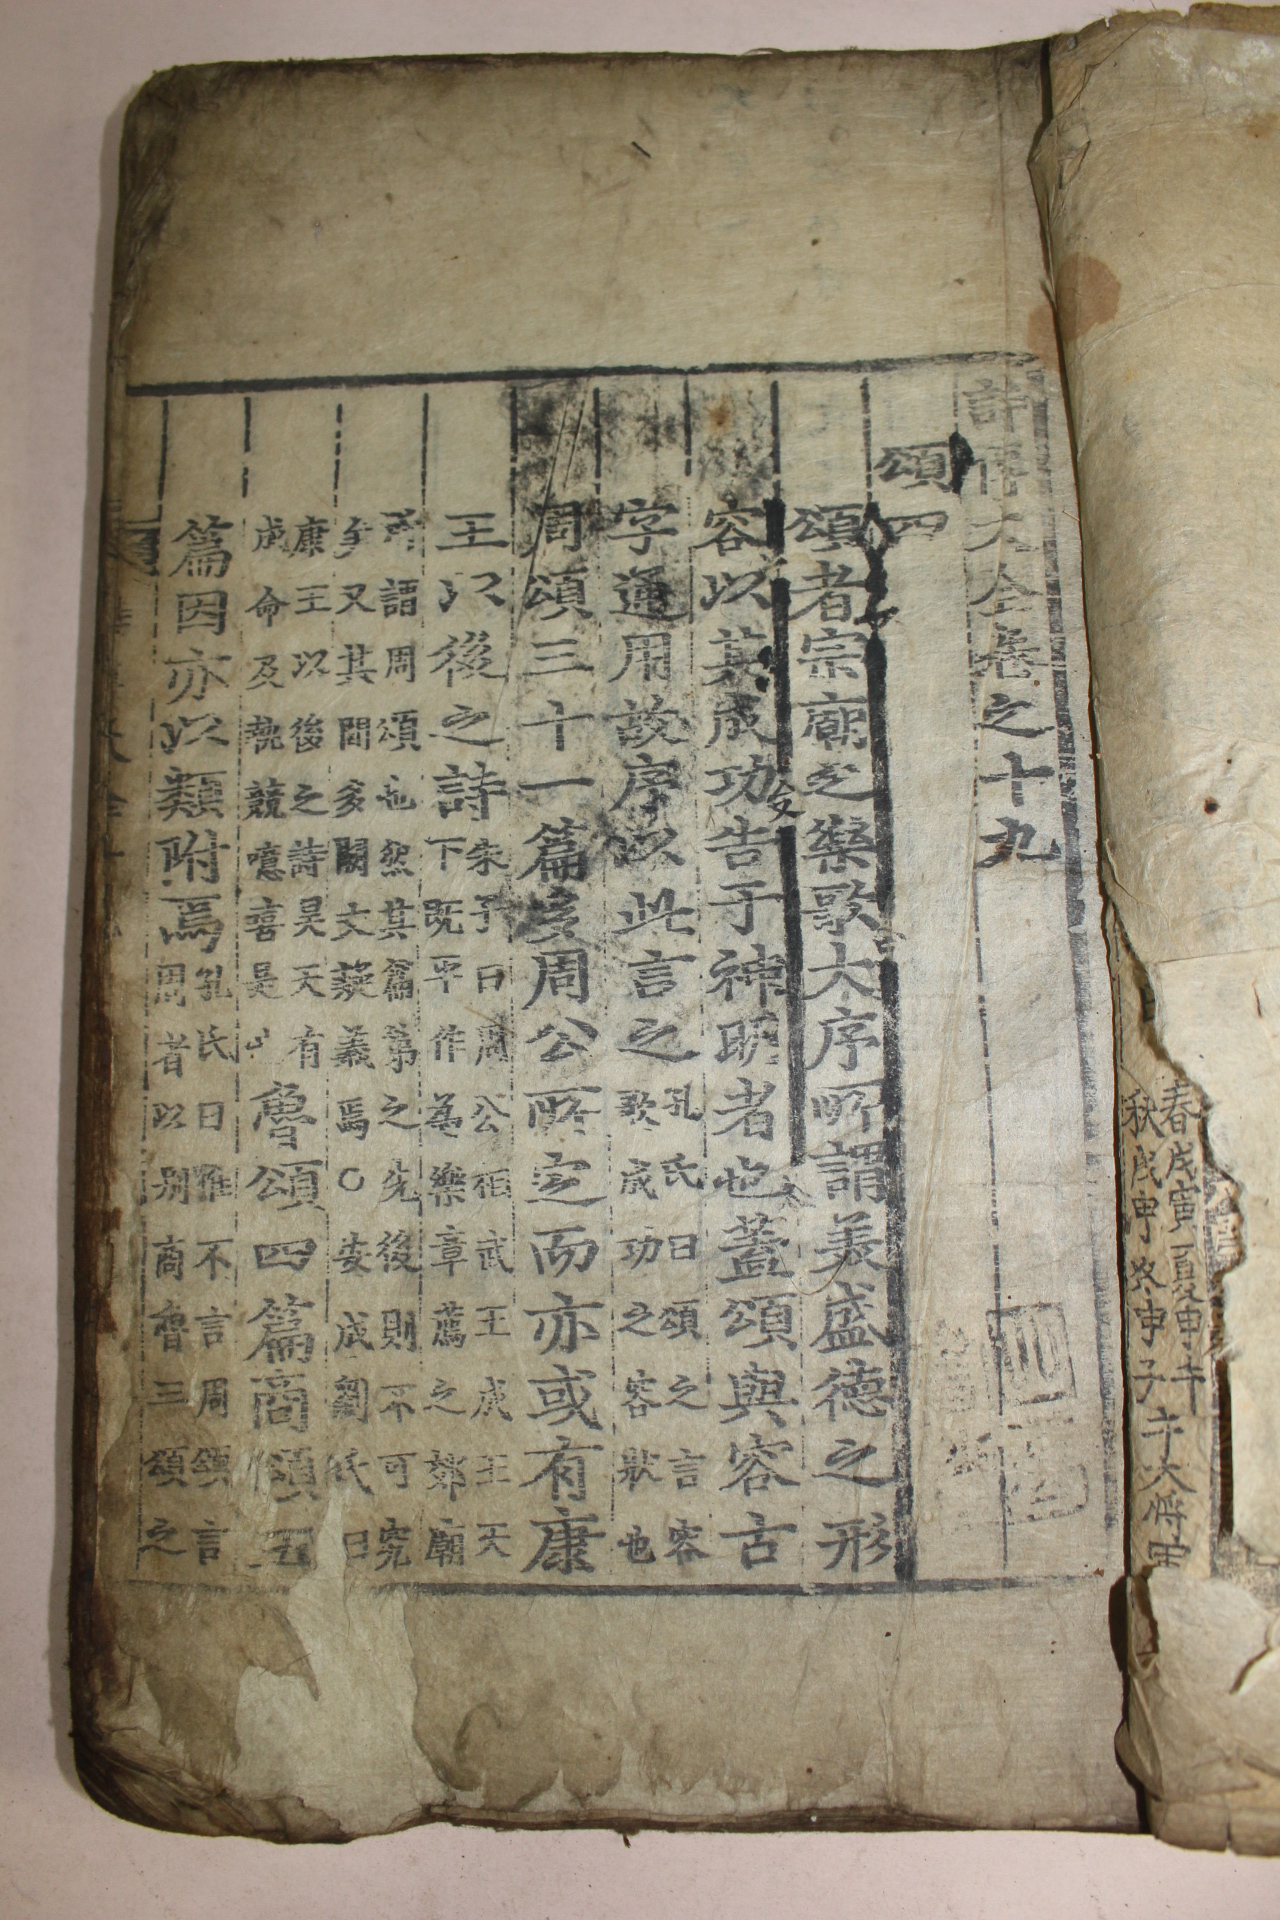 詩傳大全卷之十九
頌四
頌者宗廟之樂歌大序所謂美盛德之形
容以其成功告于神明者也蓋頌與容古
字通用故序以此言之孔氏曰頌之言容
歌成功之容狀也
周頌三十一篇多周公所定而亦或有康
王以後之詩朱子曰周公相武王成王天
下既平作為樂章薦之郊廟
所謂周頌也然其篇第之先後則不可究
矣又其間多闕文疑義焉○安成劉氏曰
康王以後之詩昊天有
成命及執競噫嘻是也
魯頌四篇商頌五
篇因亦以類附焉孔氏曰雅不言周頌言
周者以別商魯三頌之
春戊寅夏甲午
秋戊申冬甲子